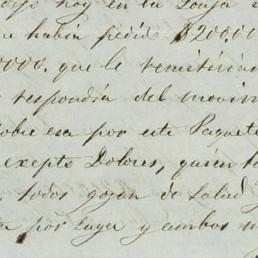 hoy en la Lonja
habia pedido $200.00
000. que le remitirian
respondia del movim
sobre esa por este Paquete
exepto Dolores, quién
todos gozan de salud y
por Luger y ambos